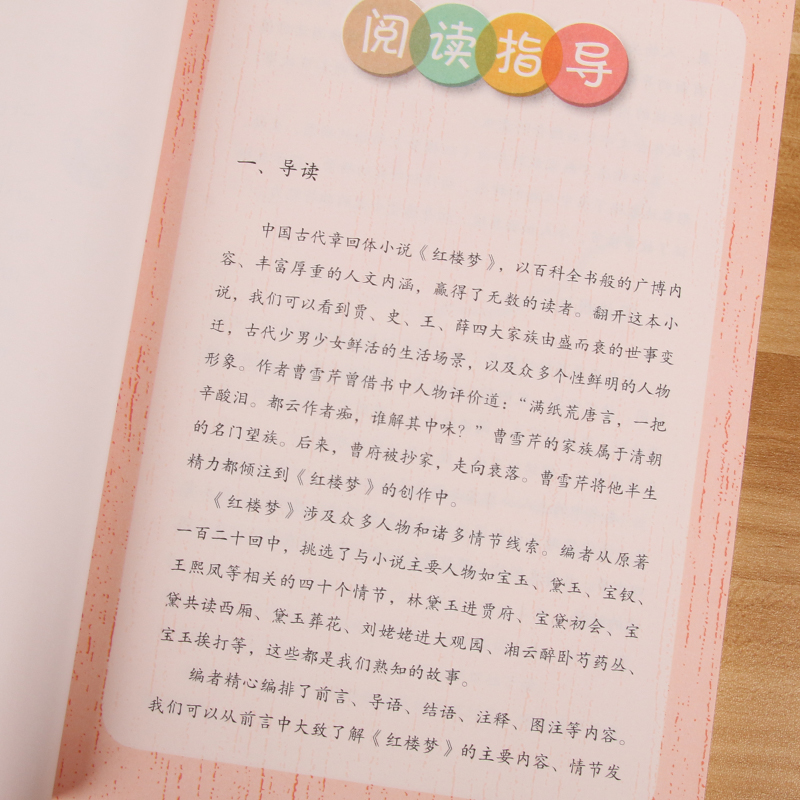 阅读指导
一、导读
中国古代章回体小说《红楼梦》，以百科全书般的广博内
容、丰富厚重的人文内涵，赢得了无数的读者。翻开这本小
说，我们可以看到贾、史、王、薛四大家族由盛而衰的世事变
迁，古代少男少女鲜活的生活场景，以及众多个性鲜明的人物
形象。作者曹雪芹曾借书中人物评价道：“满纸荒唐言，一把
辛酸泪。都云作者痴，谁解其中味？”曹雪芹的家族属于清朝
的名门望族。后来，曹府被抄家，走向衰落。曹雪芹将他半生
精力都倾注到《红楼梦》的创作中。
《红楼梦》涉及众多人物和诸多情节线索。编者从原著
一百二十回中，挑选了与小说主要人物如宝玉、黛玉、宝钗、
王熙凤等相关的四十个情节，林黛玉进贾府、宝黛初会、宝
黛共读西厢、黛玉葬花、刘姥姥进大观园、湘云醉卧芍药丛、
宝玉挨打等，这些都是我们熟知的故事。
编者精心编排了前言、导语、结语、注释、图注等内容。
我们可以从前言中大致了解《红楼梦》的主要内容、情节发